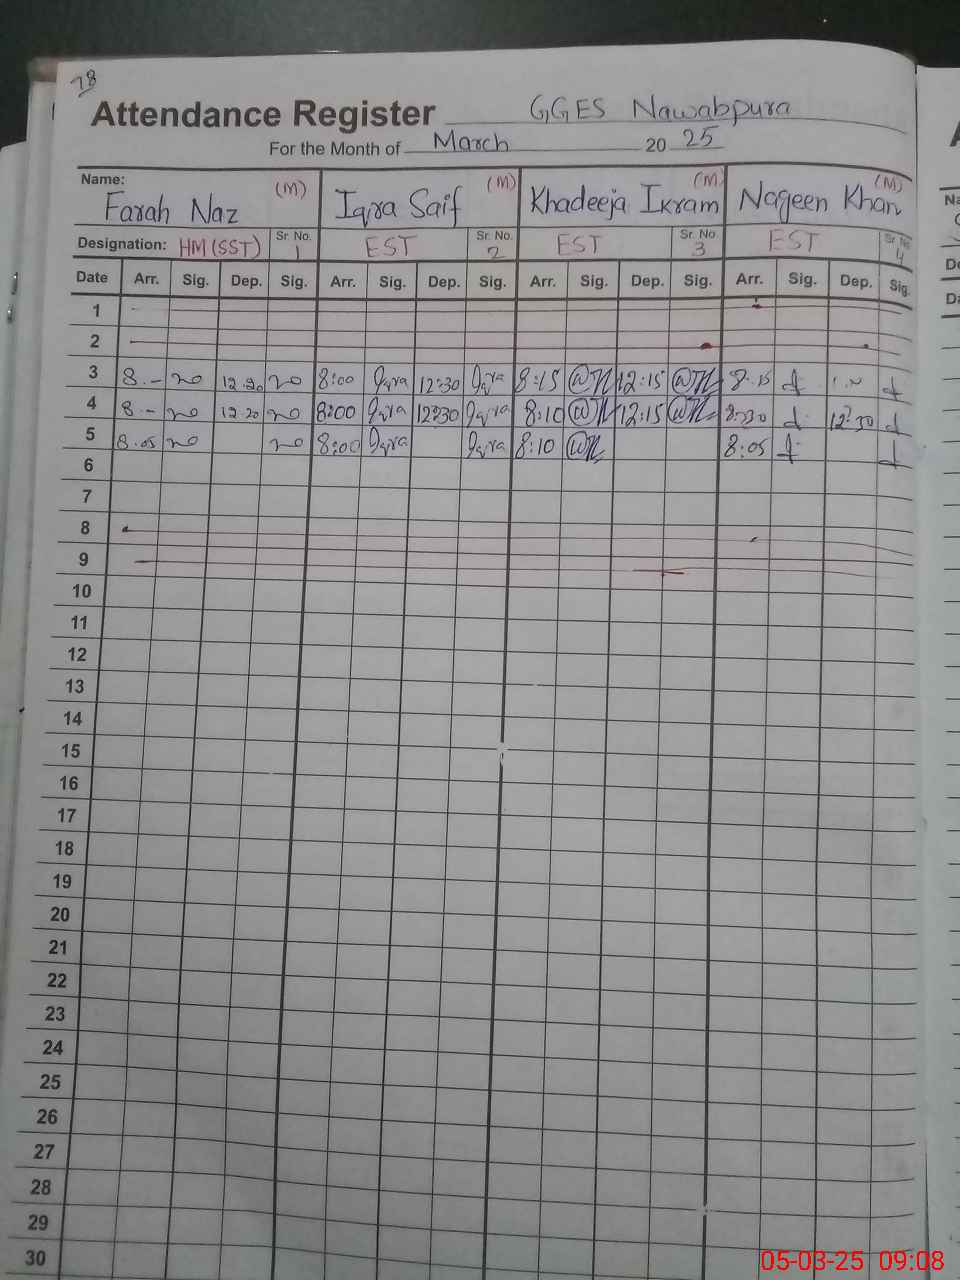 78
Attendance Register GGES Nawabpura
For the Month of March 20 25
Name: Farah Naz (M) Iqra Saif (M) Khadeeja Ikram (M) Nageen Khan (M)
Designation: HM (SST) Sr. No. 1 EST Sr. No. 2 EST Sr. No. 3 EST Sr. No. 4
Date Arr. Sig. Dep. Sig. Arr. Sig. Dep. Sig. Arr. Sig. Dep. Sig. Arr. Sig. Dep. Sig.
1
2
3 8.- 12.20 8:00 Iqra 12:30 Iqra 8:15 12:15 8:15
4 8.- 12.20 8:00 Iqra 12:30 Iqra 8:10 12:15 8:30 12:30
5 8.05 8:00 Iqra Iqra 8:10 8:05
6
7
8
9
10
11
12
13
14
15
16
17
18
19
20
21
22
23
24
25
26
27
28
29
30
05-03-25 09:08